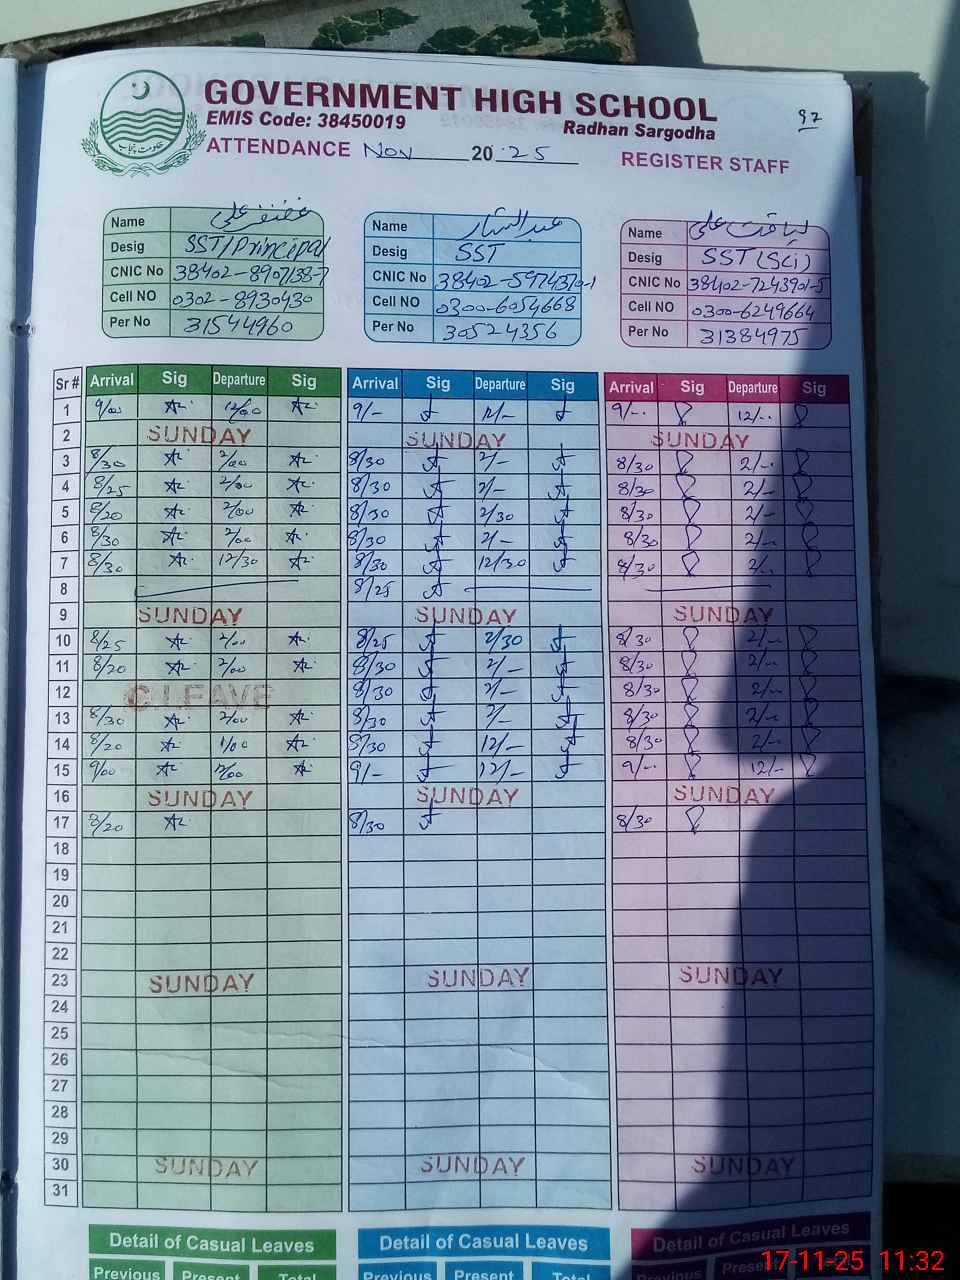 GOVERNMENT HIGH SCHOOL
EMIS Code: 38450019
Radhan Sargodha
97
ATTENDANCE Nov 20 25 REGISTER STAFF
حکومت پنجاب
Name غضنفر علی
Desig SST/Principal
CNIC No
Cell NO 0302-8930430
Per No 31544960
Name عبدالستار
Desig SST
CNIC No
Cell NO 0300-6054668
Per No 30524356
Name لیاقت علی
Desig SST (Sci)
CNIC No 38402-7243901-5
Cell NO 0300-6249664
Per No 31384975
Sr # Arrival Sig Departure Sig Arrival Sig Departure Sig Arrival Sig Departure Sig
1 9/00 12/00 9/- 12/- 9/-- 12/--
2 SUNDAY SUNDAY SUNDAY
3 8/30 2/00 8/30 2/- 8/30 2/--
4 8/25 2/00 8/30 2/- 8/30 2/--
5 8/20 2/00 8/30 2/30 8/30 2/--
6 8/30 2/00 8/30 2/- 8/30 2/--
7 8/30 12/30 8/30 12/30 8/30 2/--
8 8/25
9 SUNDAY SUNDAY SUNDAY
10 8/25 2/00 8/25 2/30 8/30 2/--
11 8/20 2/00 8/30 2/- 8/30 2/--
12 C.LEAVE 8/30 2/- 8/30 2/--
13 8/30 2/00 8/30 2/- 8/30 2/--
14 8/20 1/00 8/30 12/- 8/30 2/--
15 9/00 12/00 9/- 12/- 9/-- 12/--
16 SUNDAY SUNDAY SUNDAY
17 8/20 8/30 8/30
18
19
20
21
22
23 SUNDAY SUNDAY SUNDAY
24
25
26
27
28
29
30 SUNDAY SUNDAY SUNDAY
31
Detail of Casual Leaves Detail of Casual Leaves Detail of Casual Leaves
Previous Present Total Previous Present Total Previous Present
17-11-25 11:32